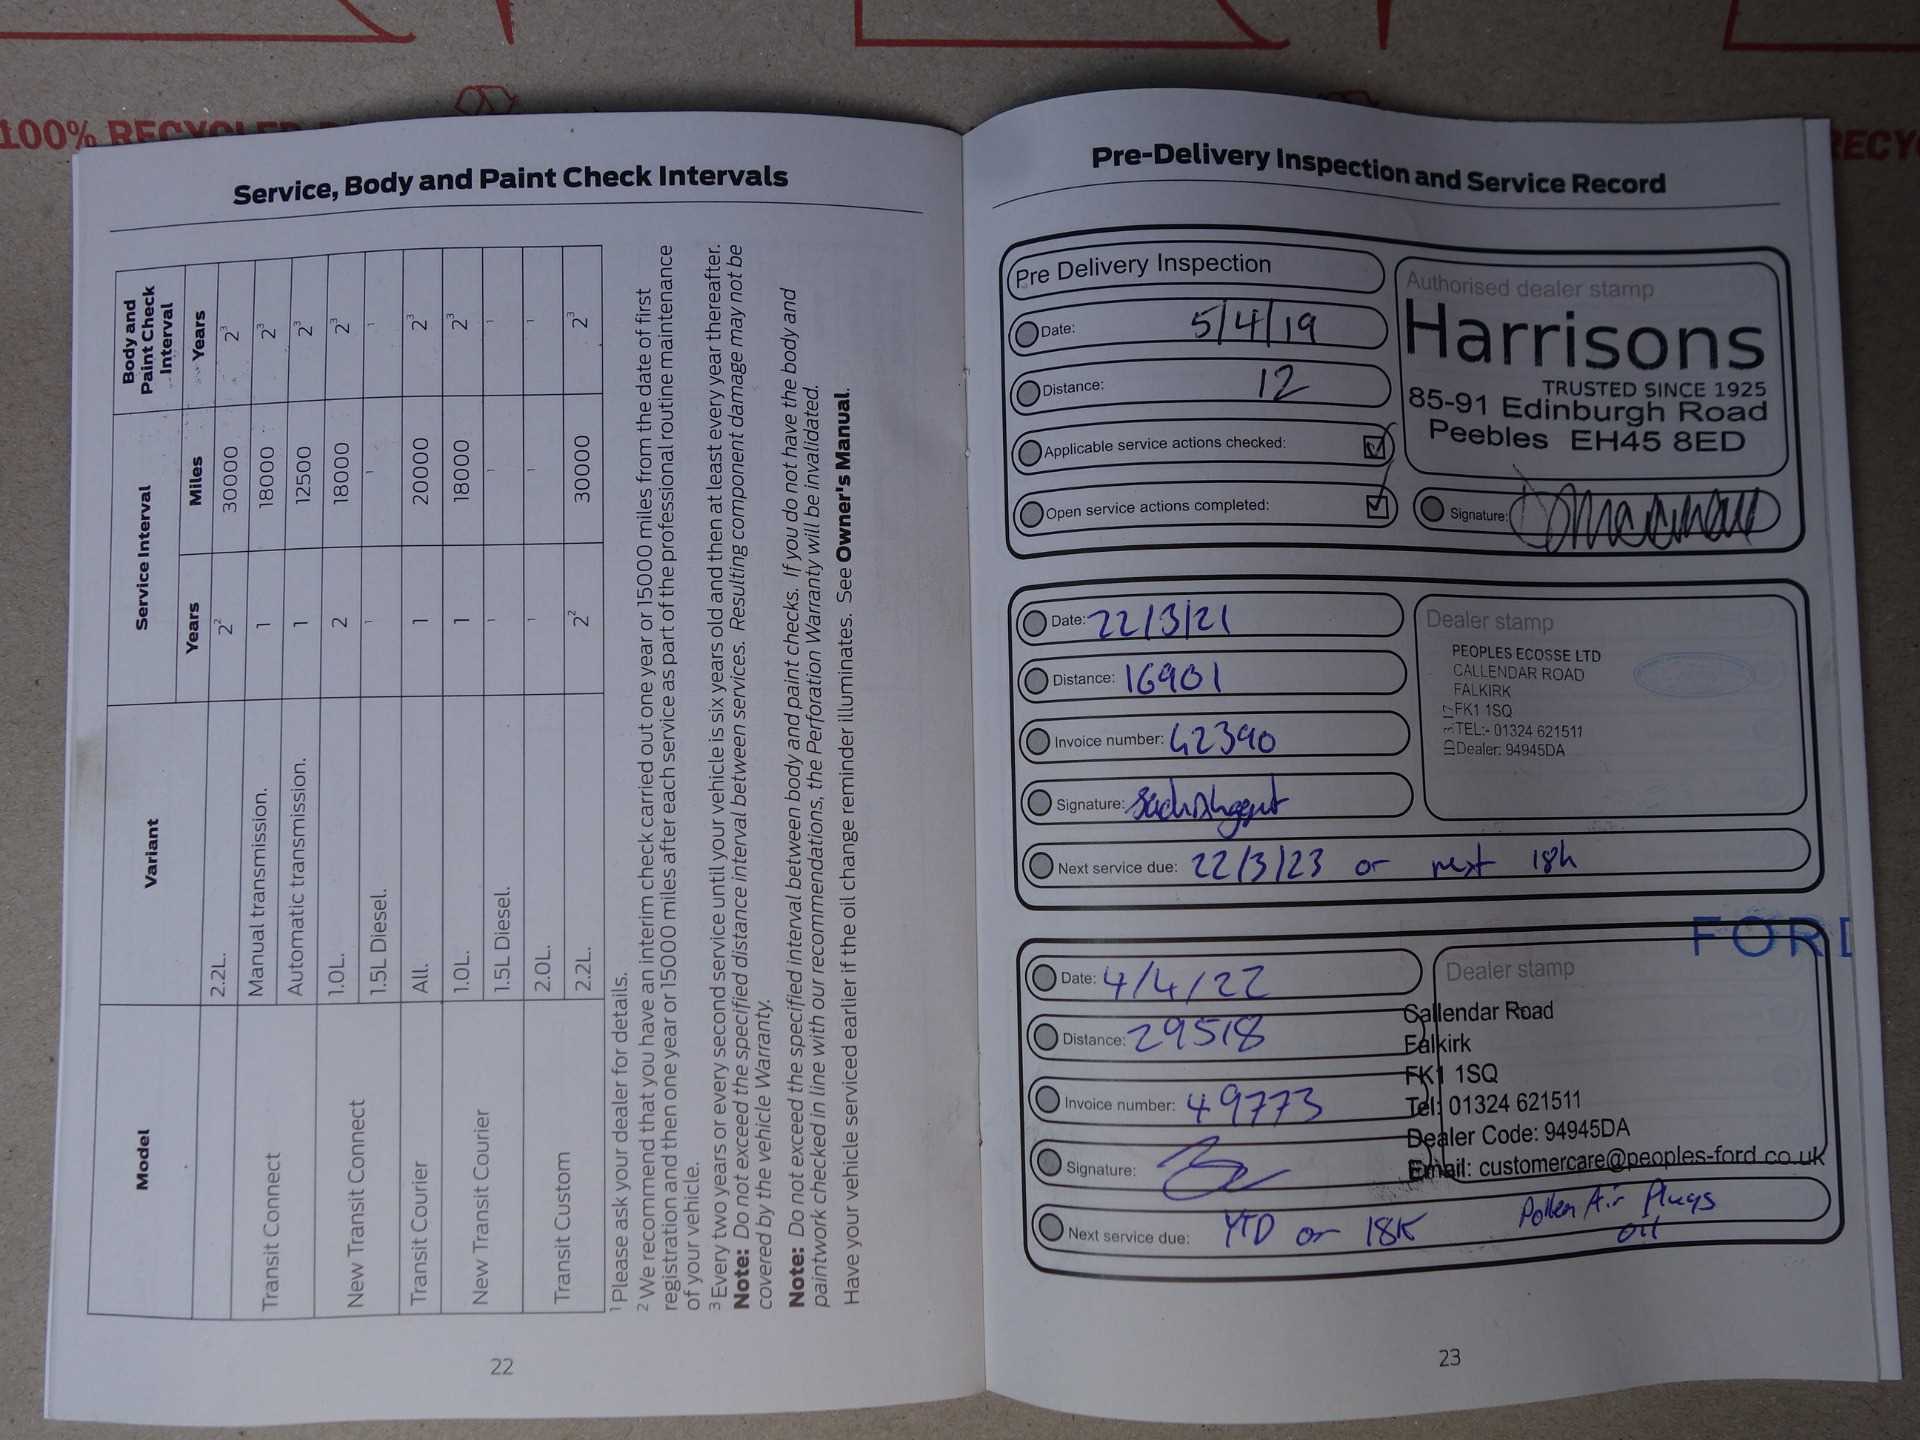 100% RECYCLED
RECY
Service, Body and Paint Check Intervals
Model
Variant
Service Interval
Body and Paint Check Interval
Years
Miles
Years
2.2L. 2² 30000 2³
Transit Connect
Manual transmission. 1 18000 2³
Automatic transmission. 1 12500 2³
New Transit Connect
1.0L. 2 18000 2³
1.5L Diesel. ¹ ¹ ¹
Transit Courier
All. 1 20000 2³
New Transit Courier
1.0L. 1 18000 2³
1.5L Diesel. ¹ ¹ ¹
Transit Custom
2.0L. ¹ ¹ ¹
2.2L. 2² 30000 2³
¹ Please ask your dealer for details.
² We recommend that you have an interim check carried out one year or 15000 miles from the date of first
registration and then one year or 15000 miles after each service as part of the professional routine maintenance
of your vehicle.
³ Every two years or every second service until your vehicle is six years old and then at least every year thereafter.
Note: Do not exceed the specified distance interval between services. Resulting component damage may not be
covered by the vehicle Warranty.
Note: Do not exceed the specified interval between body and paint checks. If you do not have the body and
paintwork checked in line with our recommendations, the Perforation Warranty will be invalidated.
Have your vehicle serviced earlier if the oil change reminder illuminates. See Owner's Manual.
22
Pre-Delivery Inspection and Service Record
Pre Delivery Inspection
Date: 5/4/19
Distance: 12
Applicable service actions checked:
Open service actions completed:
Authorised dealer stamp
Harrisons
TRUSTED SINCE 1925
85-91 Edinburgh Road
Peebles EH45 8ED
Signature:
Date: 22/3/21
Distance: 16901
Invoice number: 42390
Signature:
Next service due: 22/3/23 or next 18k
Dealer stamp
PEOPLES ECOSSE LTD
CALLENDAR ROAD
FALKIRK
FK1 1SQ
TEL:- 01324 621511
Dealer: 94945DA
FORD
Date: 4/4/22
Distance: 29518
Invoice number: 49773
Signature:
Next service due: YTD or 18K
Pollen Air Plugs
oil
Dealer stamp
Callendar Road
Falkirk
FK1 1SQ
Tel: 01324 621511
Dealer Code: 94945DA
Email: customercare@peoples-ford.co.uk
23